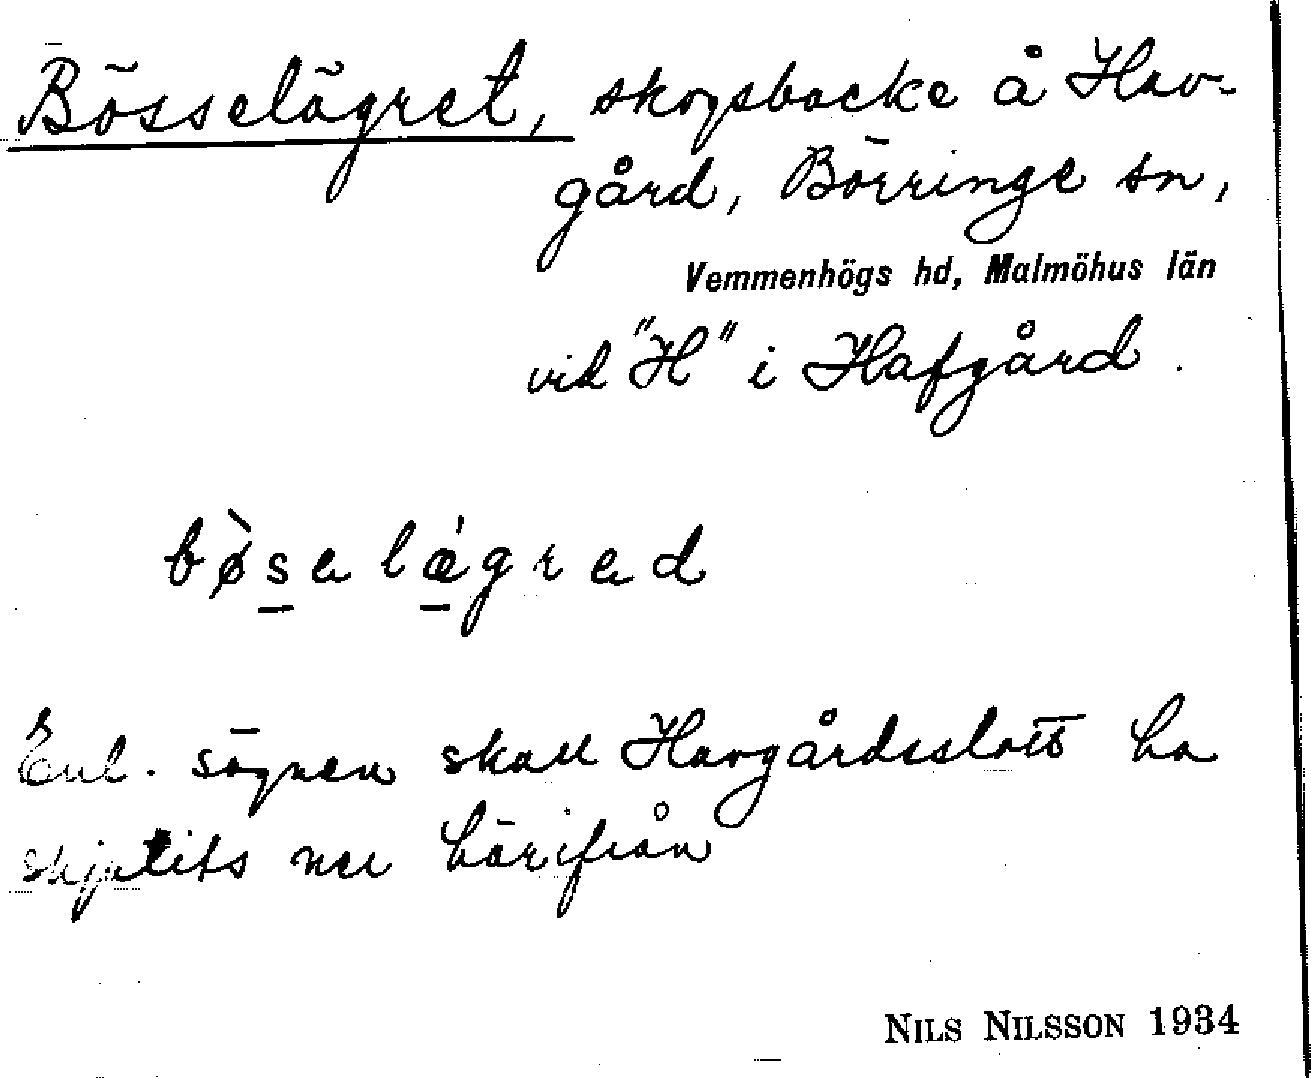 Bösselägret, skogsbacke å Hav-
gård, Börringe sn,
Vemmenhögs hd, Malmöhus län
vid "H" i Hafgård.
bø̀se lǽgred
Enl. sägnen skall Havgårdsslott ha
skjutits ner härifrån
NILS NILSSON 1934